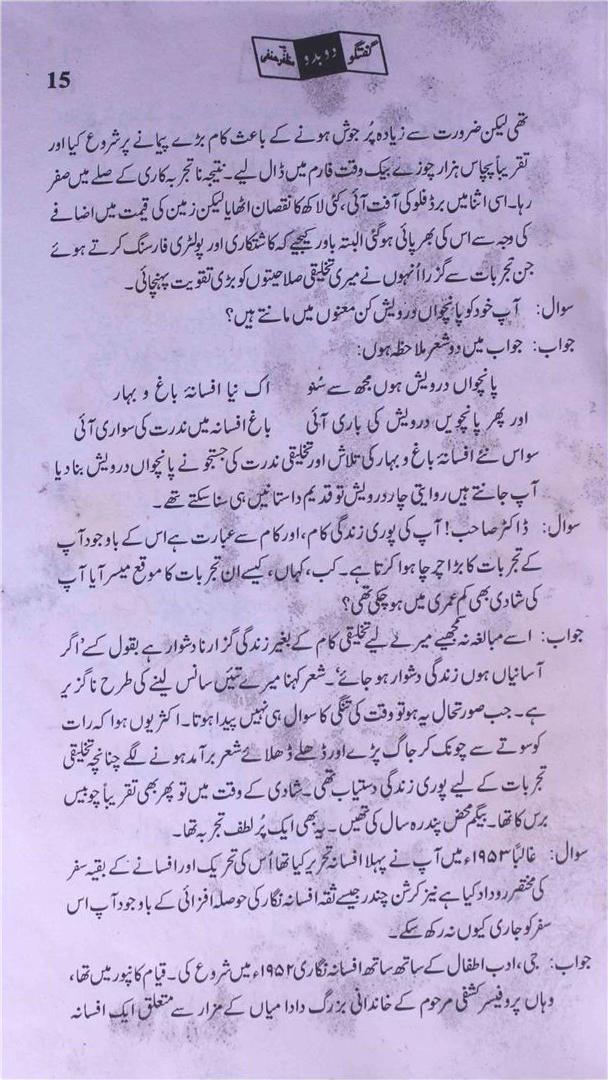 گفتگو دو بدو مظفر حنفی
15
تھی لیکن ضرورت سے زیادہ پُر جوش ہونے کے باعث کام بڑے پیمانے پر شروع کیا اور
تقریباً پچاس ہزار چوزے بیک وقت فارم میں ڈال لیے۔ نتیجہ ناتجربہ کاری کے صلے میں صفر
رہا۔ اسی اثنا میں برڈ فلو کی آفت آئی، کئی لاکھ کا نقصان اٹھایا لیکن زمین کی قیمت میں اضافے
کی وجہ سے اس کی بھرپائی ہوگئی البتہ باور کیجیے کہ کاشتکاری اور پولٹری فارمنگ کرتے ہوئے
جن تجربات سے گزرا اُنہوں نے میری تخلیقی صلاحیتوں کو بڑی تقویت پہنچائی۔
سوال: آپ خود کو پانچواں درویش کن معنوں میں مانتے ہیں؟
جواب: جواب میں دو شعر ملاحظہ ہوں:
پانچواں درویش ہوں مجھ سے سُنو اک نیا افسانۂ باغ و بہار
اور پھر پانچویں درویش کی باری آئی باغ افسانہ میں ندرت کی سواری آئی
سو اس نئے افسانۂ باغ و بہار کی تلاش اور تخلیقی ندرت کی جستجو نے پانچواں درویش بنا دیا
آپ جانتے ہیں روایتی چار درویش تو قدیم داستانیں ہی سنا سکتے تھے۔
سوال: ڈاکٹر صاحب! آپ کی پوری زندگی کام، اور کام سے عبارت ہے اس کے باوجود آپ
کے تجربات کا بڑا چرچا ہوا کرتا ہے۔ کب، کہاں، کیسے ان تجربات کا موقع میسر آیا آپ
کی شادی بھی کم عمری میں ہو چکی تھی؟
جواب: اسے مبالغہ نہ سمجھیے میرے لیے تخلیقی کام کے بغیر زندگی گزارنا دشوار ہے بقول کسے ’اگر
آسانیاں ہوں زندگی دشوار ہو جائے‘۔ شعر کہنا میرے تئیں سانس لینے کی طرح ناگزیر
ہے۔ جب صورتحال یہ ہو تو وقت کی تنگی کا سوال ہی نہیں پیدا ہوتا۔ اکثر یوں ہوا کہ رات
کو سوتے سے چونک کر جاگ پڑے اور ڈھلے ڈھلائے شعر برآمد ہونے لگے چنانچہ تخلیقی
تجربات کے لیے پوری زندگی دستیاب تھی۔ شادی کے وقت میں تو پھر بھی تقریباً چوبیس
برس کا تھا۔ بیگم محض پندرہ سال کی تھیں۔ یہ بھی ایک پُر لطف تجربہ تھا۔
سوال: غالباً ۱۹۵۳ء میں آپ نے پہلا افسانہ تحریر کیا تھا اُس کی تحریک اور افسانے کے بقیہ سفر
کی مختصر روداد کیا ہے نیز کرشن چندر جیسے ثقہ افسانہ نگار کی حوصلہ افزائی کے باوجود آپ اس
سفر کو جاری کیوں نہ رکھ سکے۔
جواب: جی، ادب اطفال کے ساتھ ساتھ افسانہ نگاری ۱۹۵۲ء میں شروع کی۔ قیام کانپور میں تھا،
وہاں پروفیسر کشفی مرحوم کے خاندانی بزرگ دادا میاں کے مزار سے متعلق ایک افسانہ